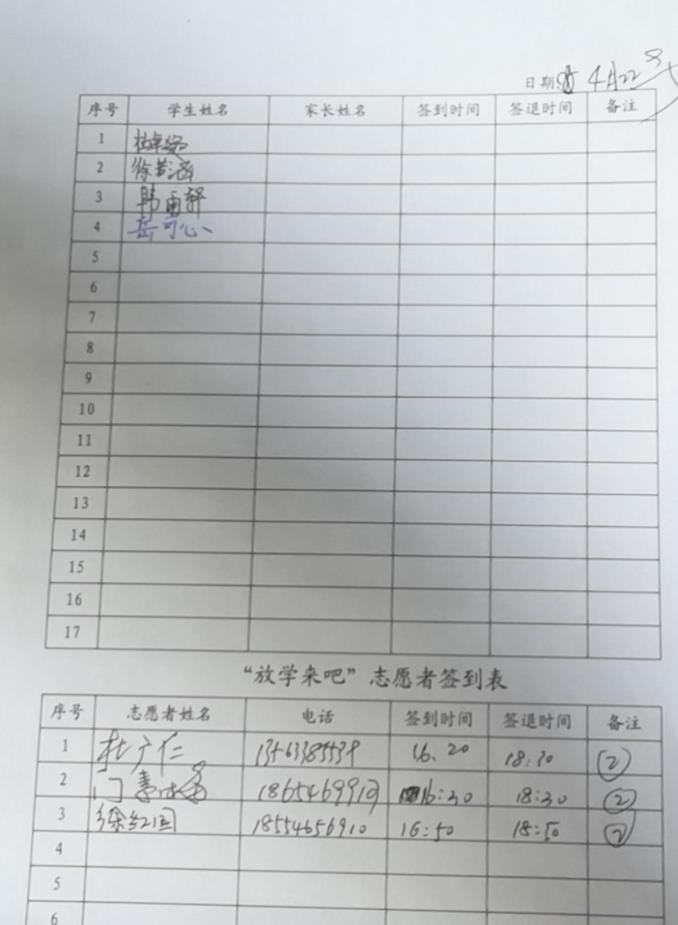 日期: 4月22日
序号 学生姓名 家长姓名 签到时间 签退时间 备注
1 杜卓
2 徐若涵
3 韩雨轩
4 岳可心
5
6
7
8
9
10
11
12
13
14
15
16
17
“放学来吧”志愿者签到表
序号 志愿者姓名 电话 签到时间 签退时间 备注
1 杜广仁 16.20 18:20 ②
2 门 18654699109 16:30 18:30 ②
3 徐红国 18554656910 16:50 18:50 ②
4
5
6